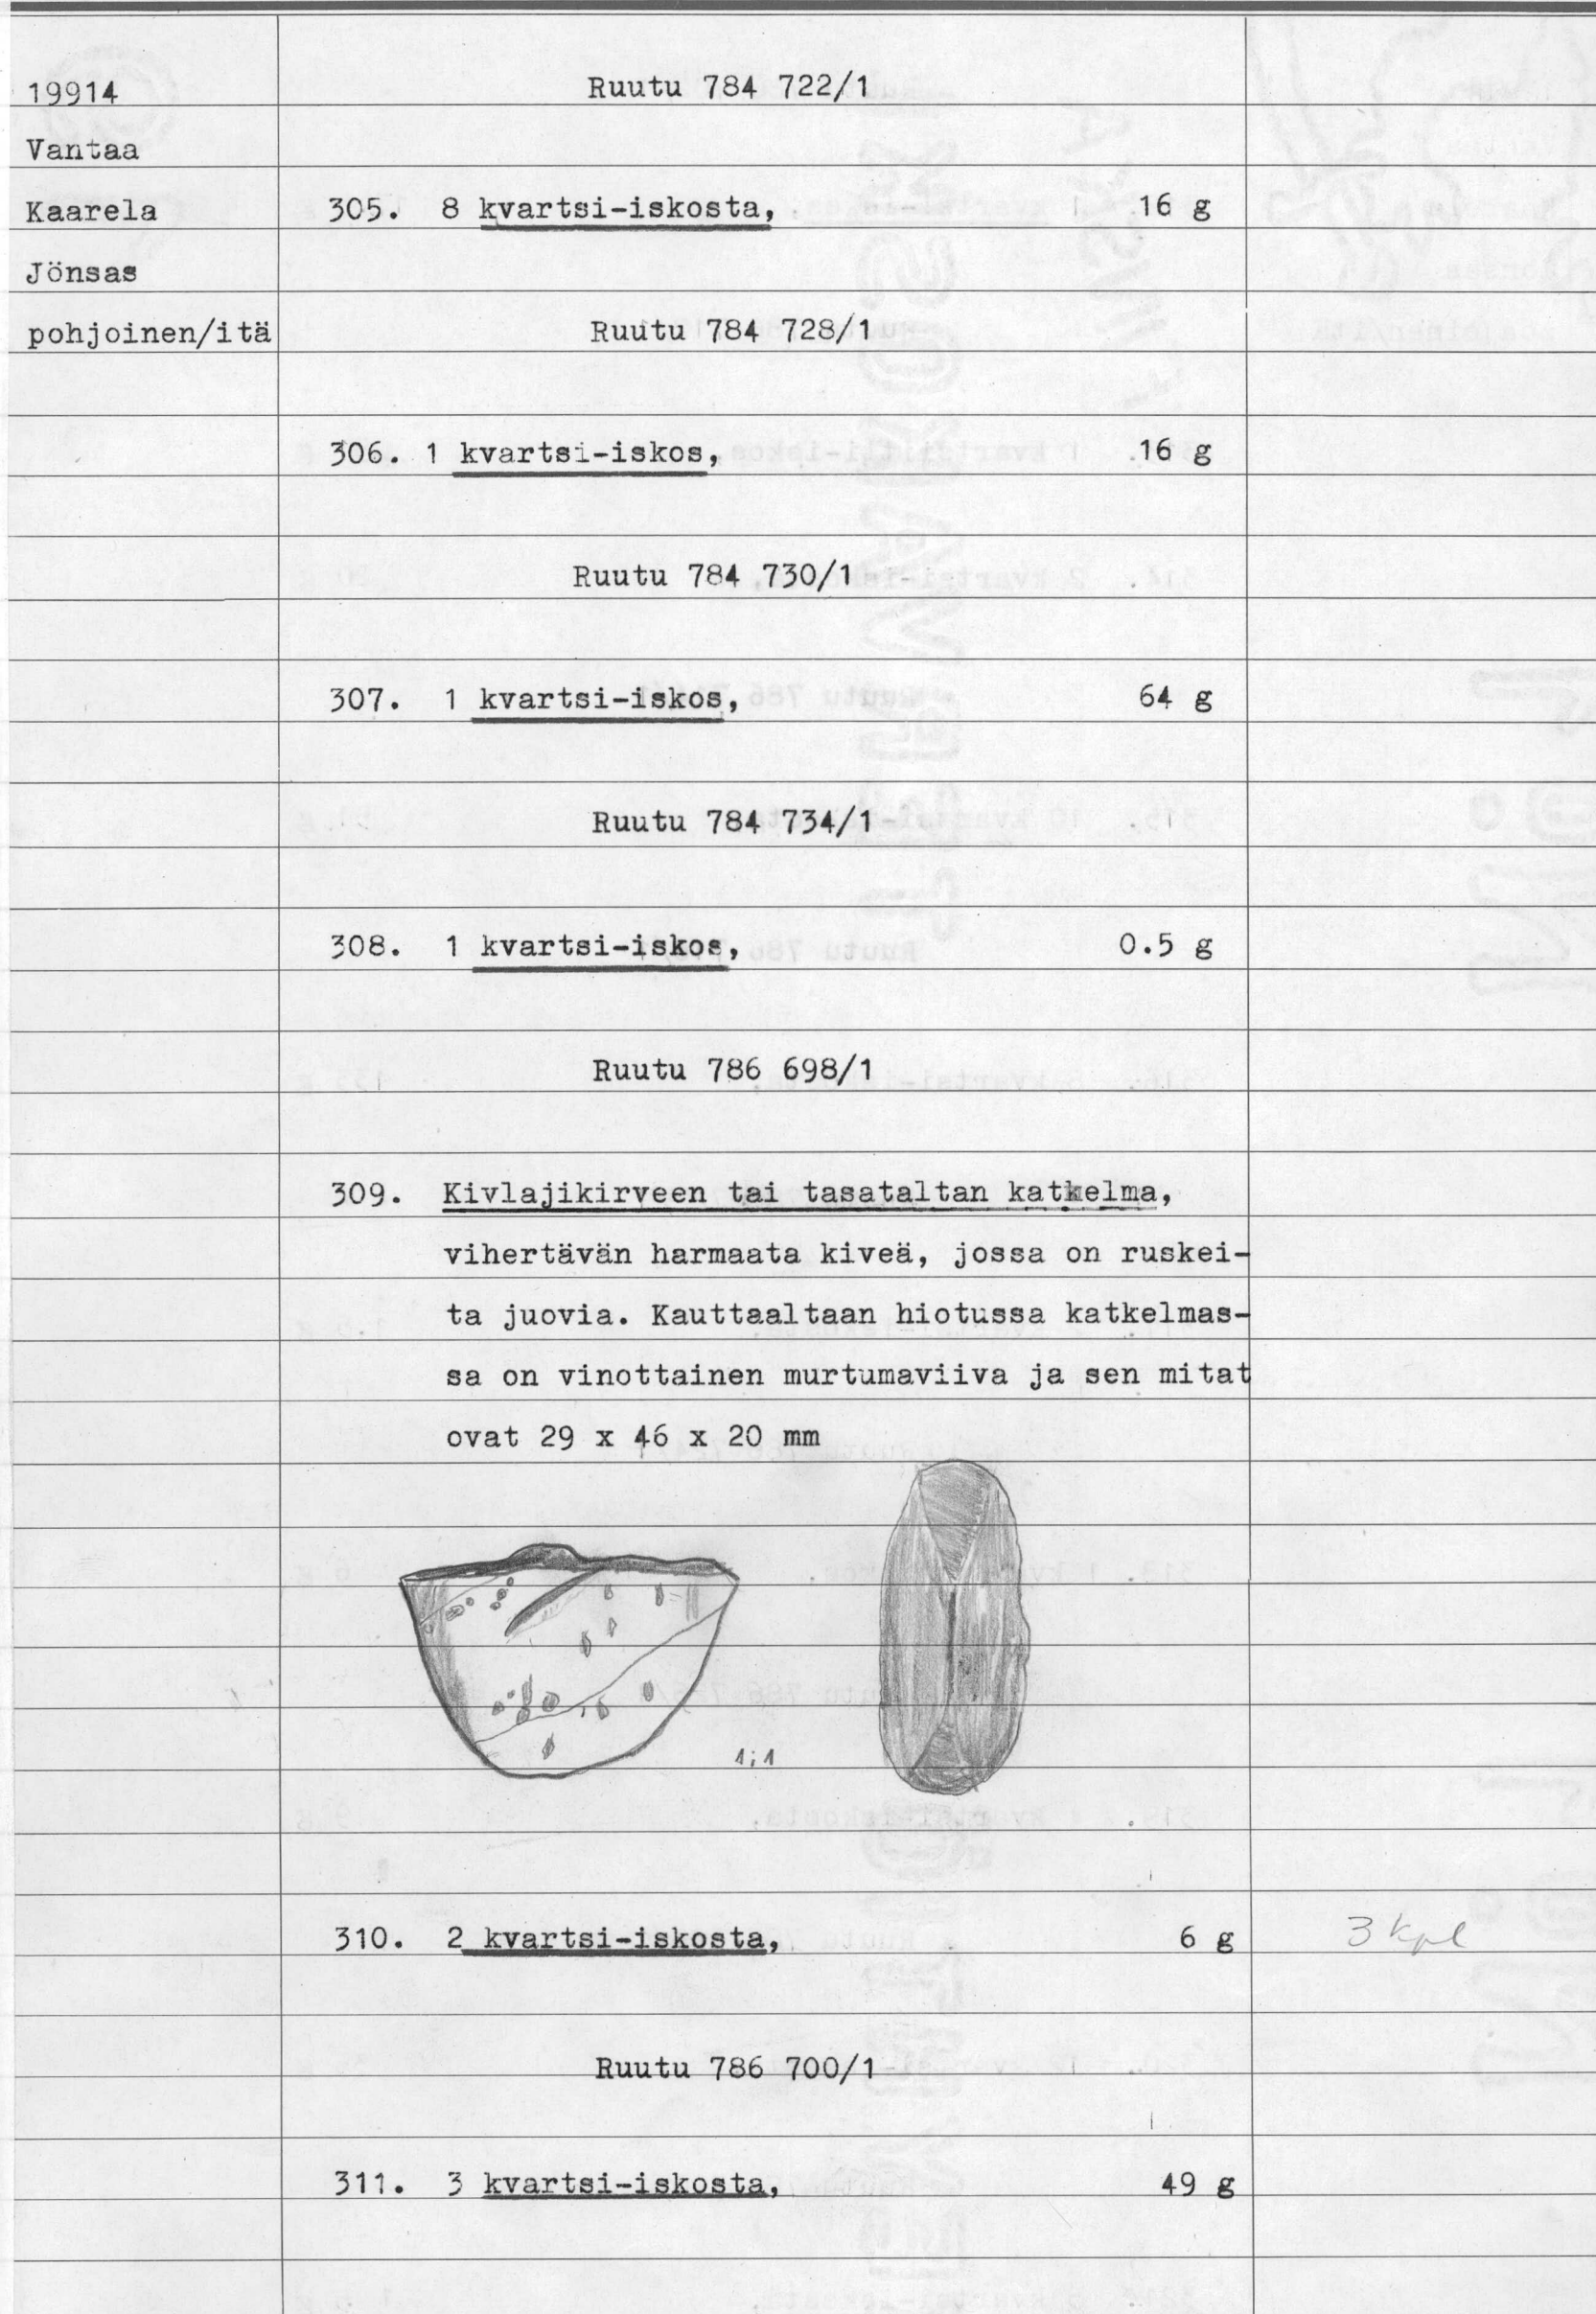 19914
Ruutu 784 722/1
Vantaa
Kaarela
305. 8 kvartsi-iskosta, 16 g
Jönsas
pohjoinen/itä
Ruutu 784 728/1
306. 1 kvartsi-iskos, 16 g
Ruutu 784 730/1
307. 1 kvartsi-iskos, 64 g
Ruutu 784 734/1
308. 1 kvartsi-iskos, 0.5 g
Ruutu 786 698/1
309. Kivlajikirveen tai tasataltan katkelma,
vihertävän harmaata kiveä, jossa on ruskei-
ta juovia. Kauttaaltaan hiotussa katkelmas-
sa on vinottainen murtumaviiva ja sen mitat
ovat 29 x 46 x 20 mm
1:1
310. 2 kvartsi-iskosta, 6 g 3 kpl
Ruutu 786 700/1
311. 3 kvartsi-iskosta, 49 g